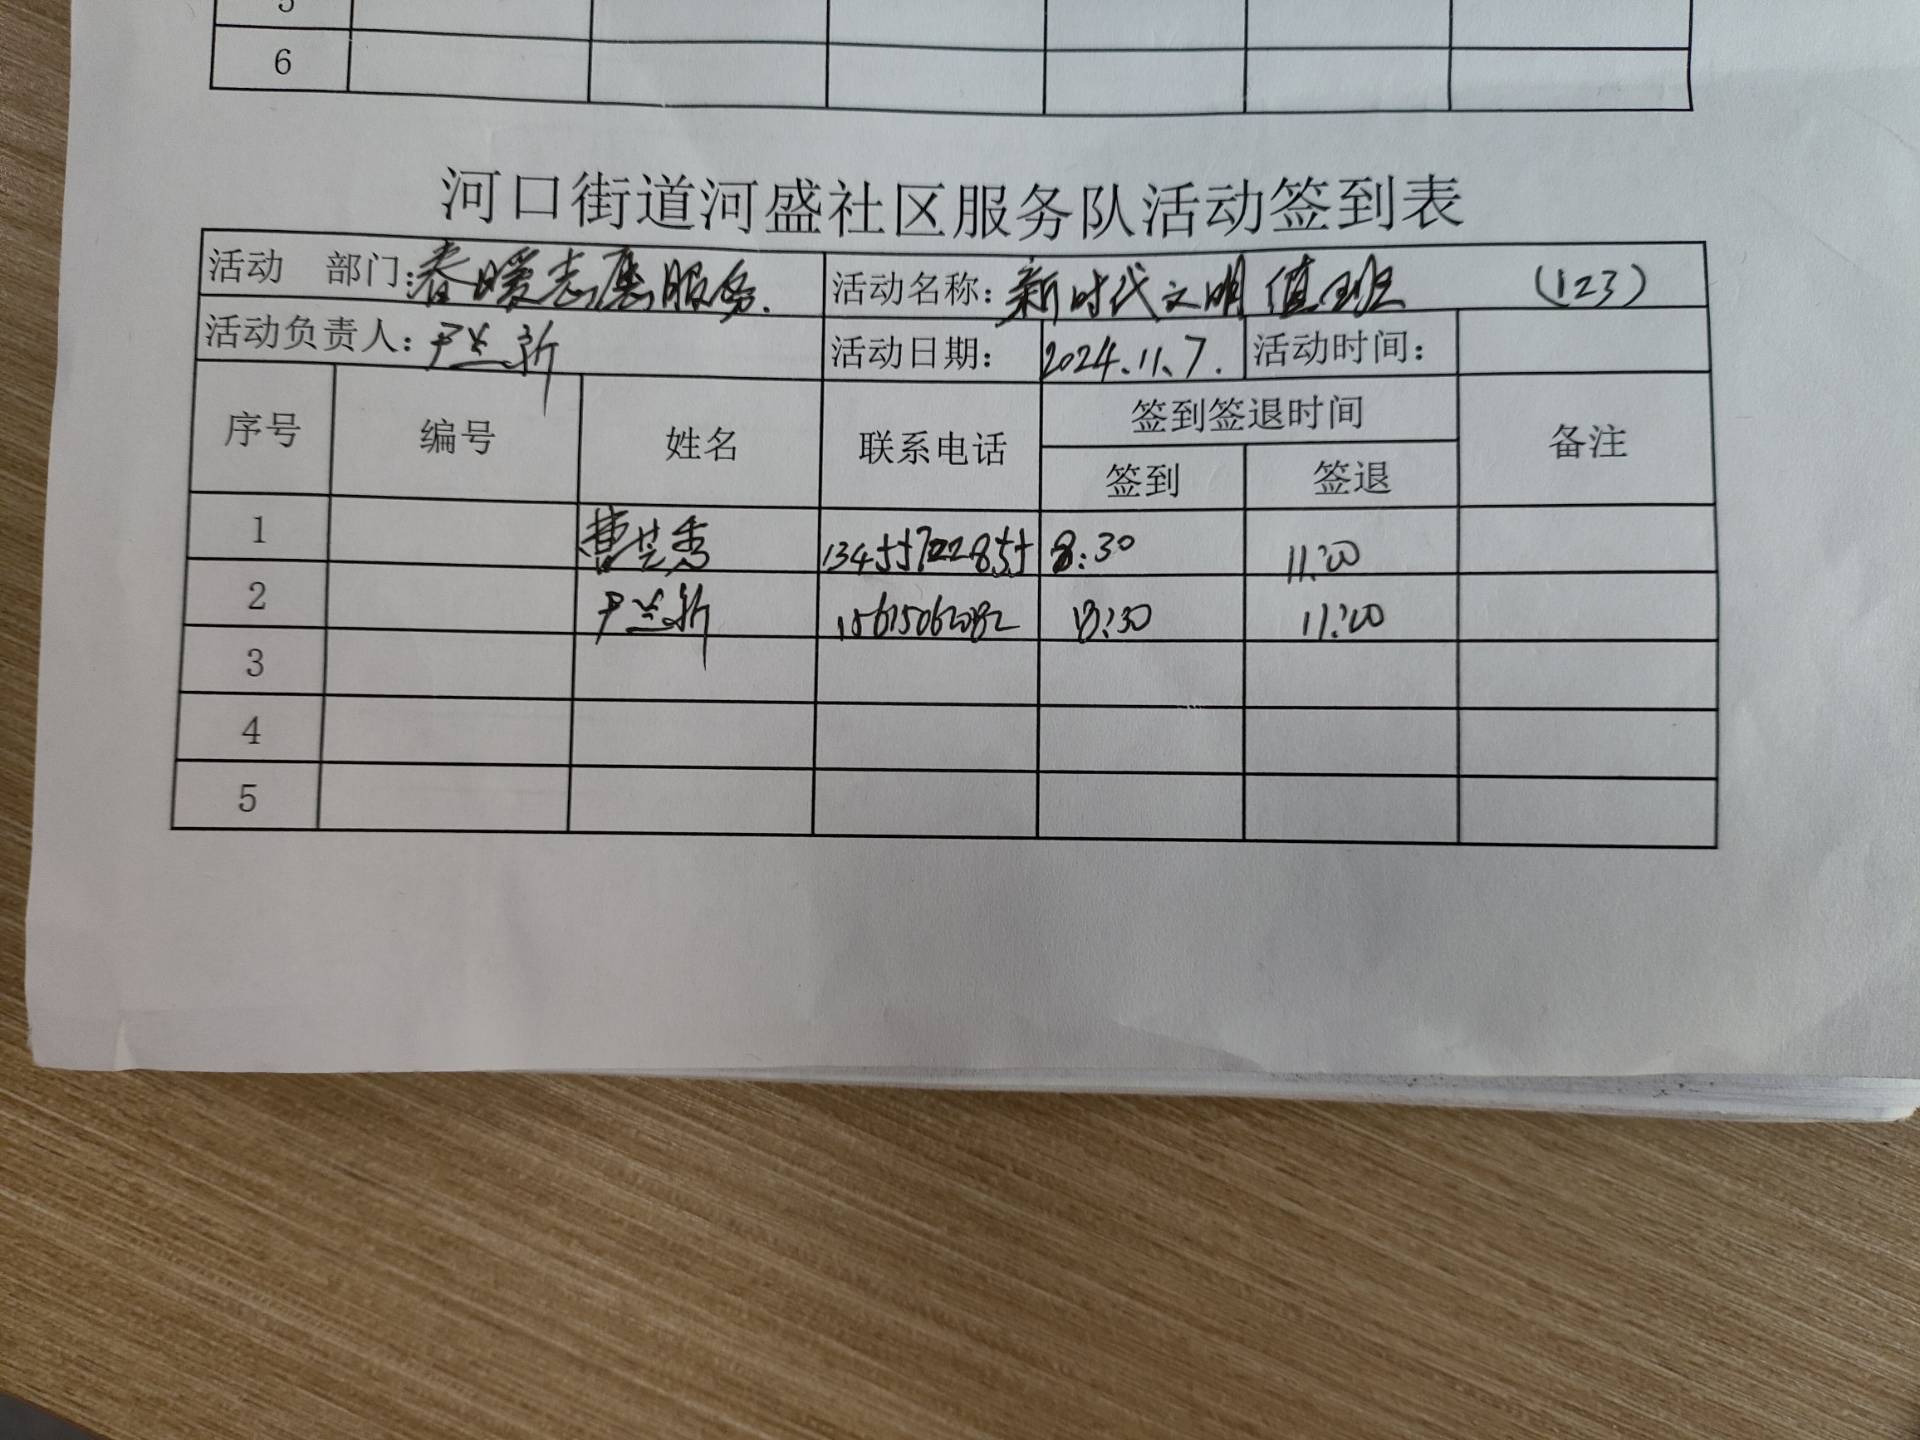 6
河口街道河盛社区服务队活动签到表
活动 部门:春暖志愿服务. 活动名称:新时代文明值班 (123)
活动负责人:尹兰新 活动日期: 2024.11.7. 活动时间:
序号 编号 姓名 联系电话 签到签退时间 备注
签到 签退
1 曹芸秀 13455722855 8:30 11:00
2 尹兰新 15615062082 8:30 11:00
3
4
5